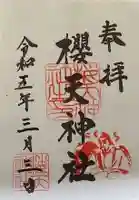 奉拝
櫻天神社
令和五年三月三日